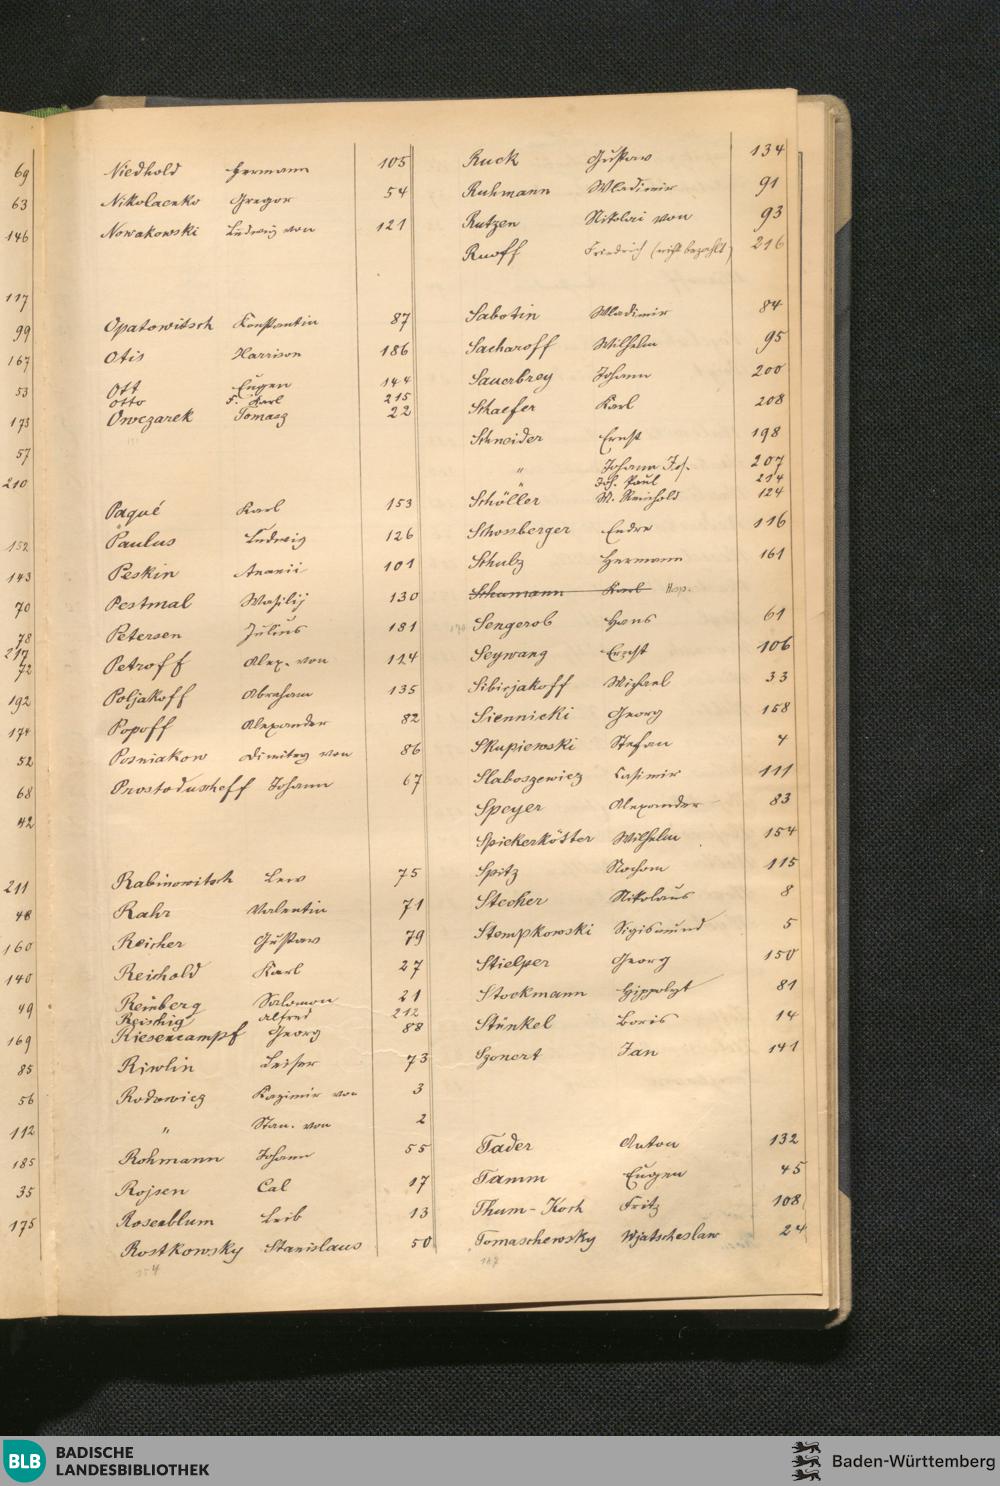 69
63
146
117
99
167
53
173
57
210
152
143
70
78
217
72
192
174
52
68
42
211
48
160
140
49
169
85
56
112
185
35
175
Niedhold Hermann 105
Nikolaenko Gregor 54
Nowakowski Ludwig von 121
Opatowitsch Konstantin 87
Otis Harrison 186
Ott Eugen 144
Otto F. Karl 215
Owczarek Tomasz 22
Paqué Karl 153
Paulus Ludwig 126
Peskin Ananii 101
Pestmal Wasilij 130
Petersen Julius 181
Petroff Alex. von 114
Poljakoff Abraham 135
Popoff Alexander 82
Posniakow Dimitry von 86
Prostoduscheff Johann 67
Rabinowitsch Lew 75
Rahr Valentin 71
Reicher Gustav 79
Reichold Karl 27
Reinberg Salomon 21
Reishig Alfred 212
Riesencampf Georg 88
Riwlin Leiser 73
Rodowicz Kazimir von 3
" Stan. von 2
Rohmann Johann 55
Rojsen Cal 17
Rosenblum Leib 13
Rostkowsky Stanislaus 50
154
Ruck Gustav 134
Ruhmann Wladimir 91
Rutzen Nikolai von 93
Ruoff Friedrich (nicht bezahlt) 216
Sabotin Wladimir 84
Sacharoff Wilhelm 95
Sauerbrey Johann 200
Schaefer Karl 208
Schneider Ernst 198
" Johann Jos. 207
" Joh. Paul 214
Schöller W. Reinhold 124
Schossberger Endre 116
Schulz Hermann 161
Schumann Karl Hosp.
Sengerob Hans 61
Seywang Ernst 106
Sibirjakoff Michael 33
Siennicki Georg 158
Skupiewski Stefan 4
Slaboszewicz Casimir 111
Speyer Alexander 83
Spiekerkötter Wilhelm 154
Spitz Nochom 115
Stecher Nikolaus 8
Stempkowski Sigismund 5
Stielper Georg 150
Stockmann Hippolyt 81
Stünkel Boris 14
Szonert Jan 141
Tader Anton 132
Tamm Eugen 45
Thum-Koch Fritz 108
Tomaschewsky Wjatscheslaw 24
BLB BADISCHE
LANDESBIBLIOTHEK
Baden-Württemberg